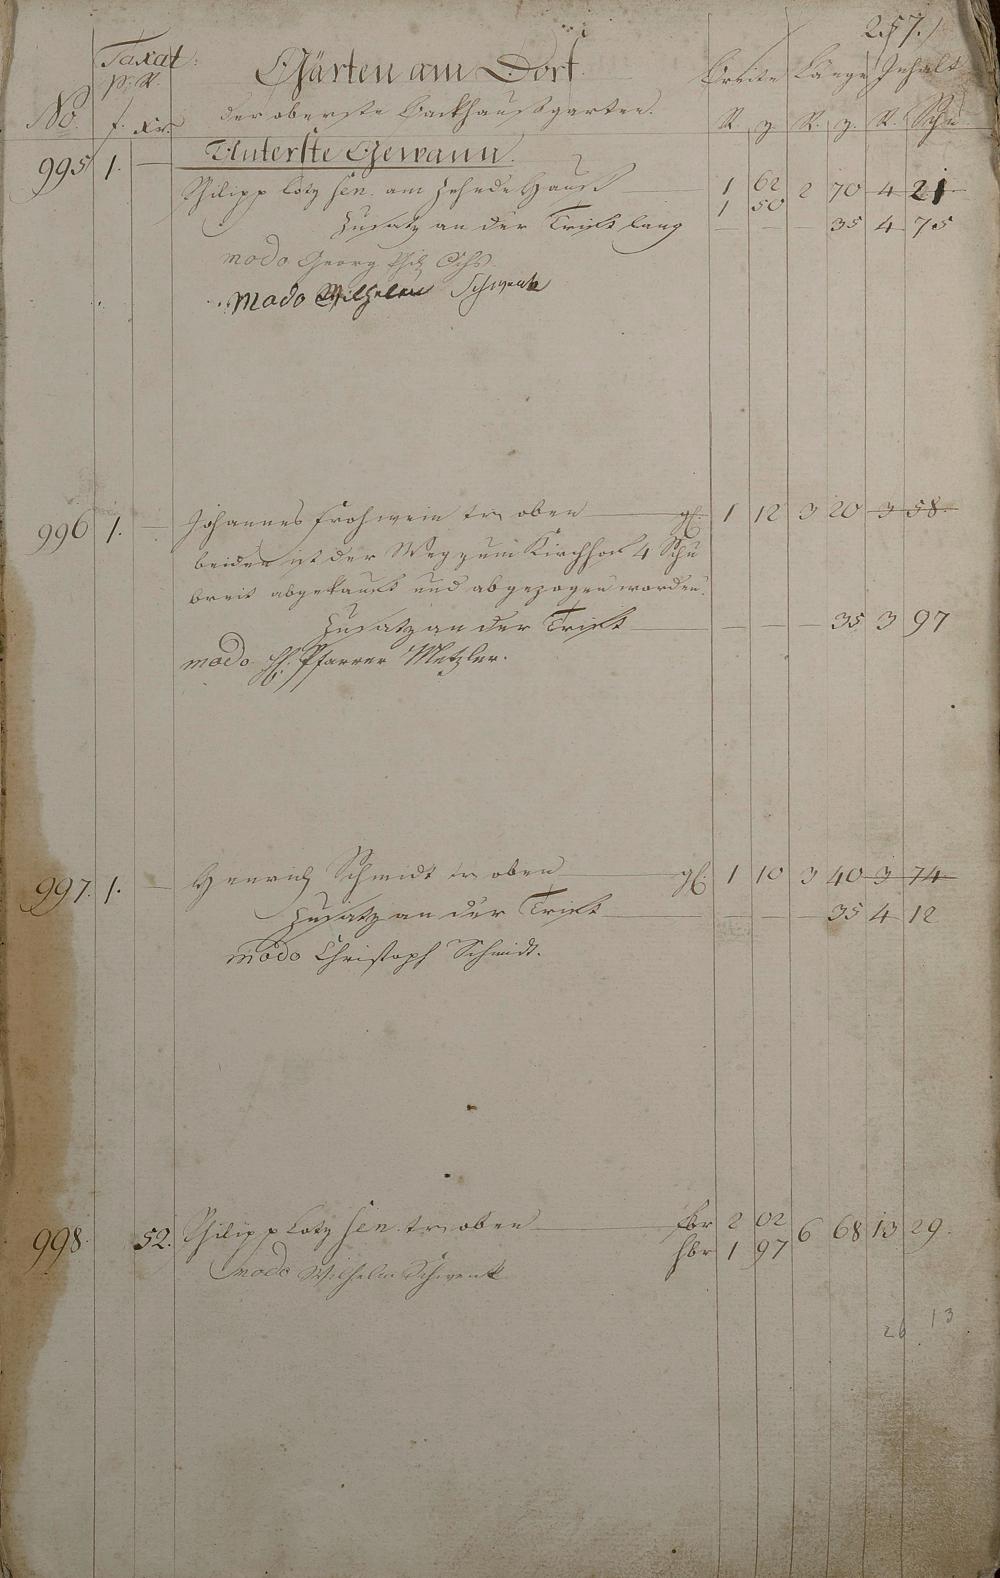 257.
Taxat: Gärten am Dorf. Breite Länge Inhalt
p. R.
No. f. xr. der oberste Backhaußgarten. R. z. R. z. R. Schu
Unterste Gewann.
995 1. — Philipp Lotz sen. am Zehnde Hauß 1 62 2 70 4 21
1 50
Zusatz an der Trifft lang — — — 35 4 75
modo Georg Phil. Ochs
modo Wilhelm Schwenk
996 1. — Johannes Frohwein tr. oben gl. 1 12 3 20 3 58
beiden ist der Weg zum Kirchhof 4 Schu
breit abgekauft und abgezogen worden.
Zusatz an der Trifft — — — 35 3 97
modo H. Pfarrer Metzler.
997. 1. — Henrich Schmidt tr. oben gl. 1 10 3 40 3 74
Zusatz an der Trifft — — — 35 4 12
modo Christoph Schmidt.
998. 52. Philipp Lotz sen. tr. oben fbr 2 02 6 68 13 29.
hbr 1 97
modo Wilhelm Schwenk
26 13